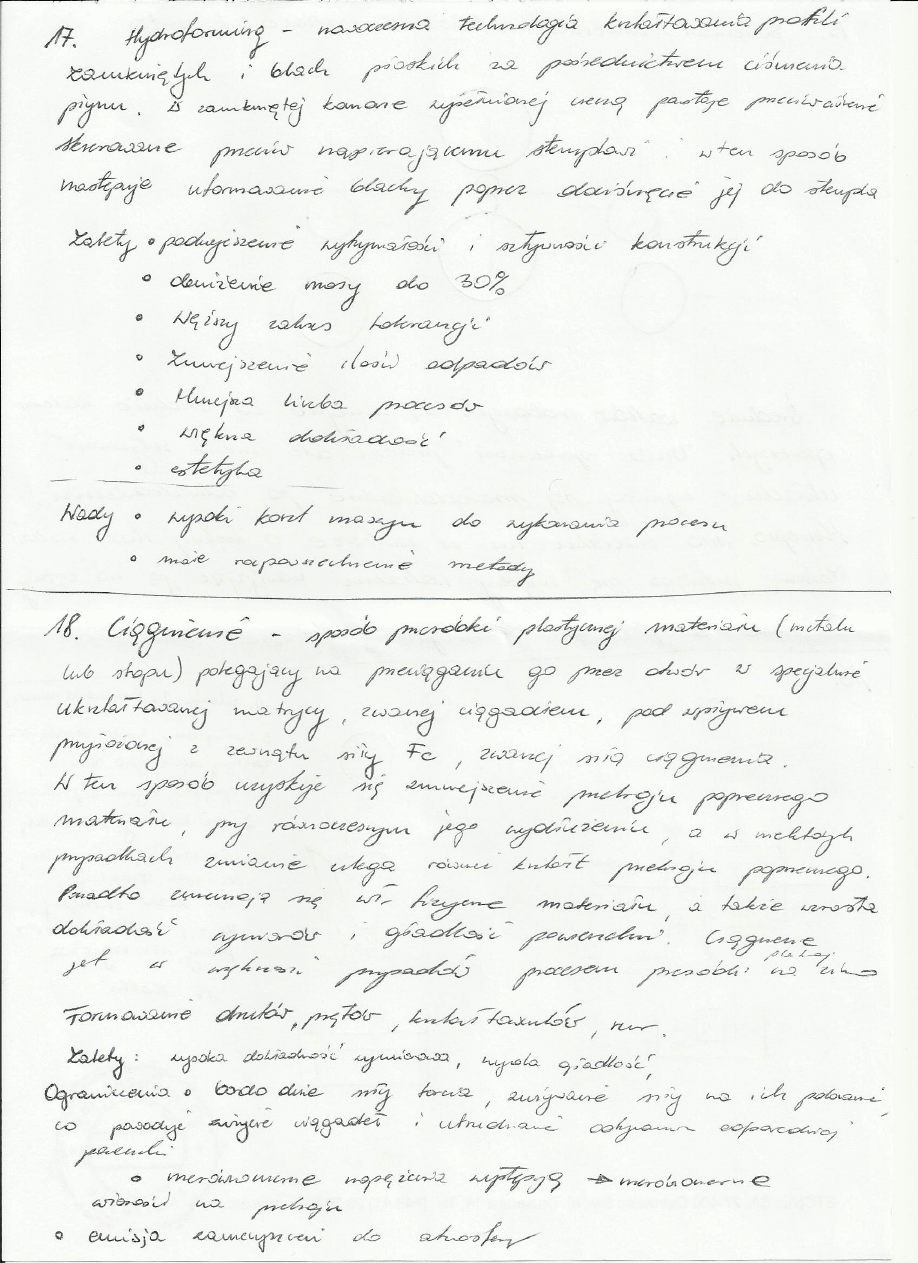 17. Hydroforming – nowoczesna technologia kształtowania profili
zamkniętych i blach płaskich za pośrednictwem ciśnienia
płynu. W zamkniętej komorze wypełnionej cieczą powstaje przeciwciśnienie
skierowane przeciw napierającemu stemplowi i w ten sposób
następuje uformowanie blachy poprzez dociśnięcie jej do stempla
Zalety • podwyższenie wytrzymałości i sztywności konstrukcji
• obniżenie masy do 30%
• Węższy zakres tolerancji
• Zmniejszenie ilości odpadów
• Mniejsza liczba procesów
• większa dokładność
• estetyka
Wady • wysoki koszt maszyn do wykonania procesu
• małe rozpowszechnienie metody
18. Ciągnienie – sposób przeróbki plastycznej materiału (metalu
lub stopu) polegający na przeciąganiu go przez otwór w specjalnie
ukształtowanej matrycy, zwanej ciągadłem, pod wpływem
przyłożonej z zewnątrz siły Fc, zwanej siłą ciągnienia.
W ten sposób uzyskuje się zmniejszenie przekroju poprzecznego
materiału, przy równoczesnym jego wydłużeniu, a w niektórych
przypadkach zmianie ulega również kształt przekroju poprzecznego.
Ponadto zmieniają się wł. fizyczne materiału, a także wzrasta
dokładność wymiarów i gładkość powierzchni. Ciągnienie
jest w większości przypadków procesem przeróbki plastycznej na zimno
Formowanie drutów, prętów, kształtowników, rur.
Zalety: wysoka dokładność wymiarowa, wysoka gładkość,
Ograniczenia • bardzo duże siły tarcia, zużywanie siły na ich pokonanie,
co powoduje zużycie ciągadeł i utrudnianie otrzymania odpowiedniej
powierzchni
• nierównomierne naprężenia występują → nierównomierne
własności na przekroju
• emisja zanieczyszczeń do atmosfery